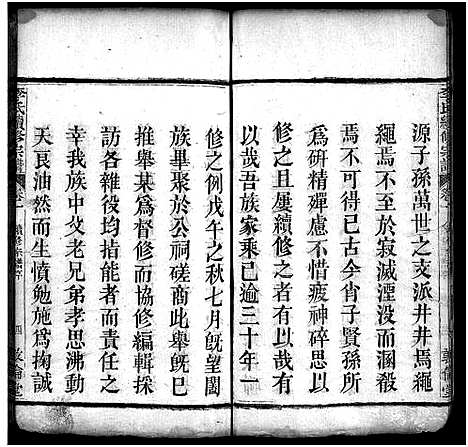 源子孫萬世之支派井井焉繩
繩焉不至於寂滅湮沒而溷殽
焉不可得已古今肖子賢孫所
爲研精殫慮不惜疲神碎思以
修之且屢續修之者有以哉有
以哉吾族家乘已逾三十年一
修之例戊午之秋七月既望闔
族畢聚於公祠磋商此舉既巳
推舉某爲督修而協修編輯採
訪各雜役均指能者而責任之
幸我族中父老兄弟孝思沸動
天良油然而生憤勉施爲掬誠
李氏續修宗譜
卷一
續修宗譜序
四
敦倫堂